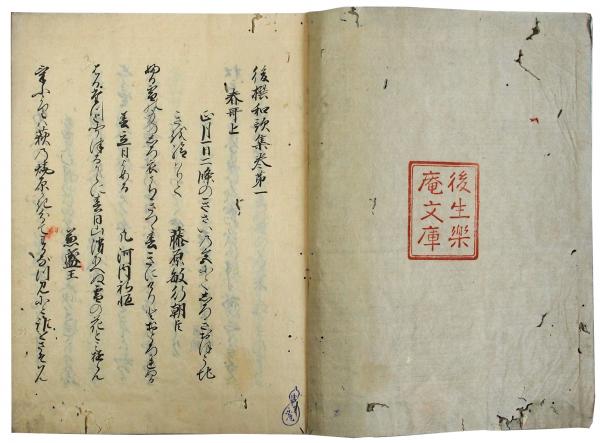 後生樂
庵文庫
後撰和歌集巻第一
春哥上
正月一日二條のきさいの宮にてしろきおほうち
きを給りて 藤原敏行朝臣
ふる雪のみのしろ衣うちきつゝ春きにけりとおとろかれぬる
春立日よめる 凡河内躬恒
春日山消あへぬ雪の花と
兼盛王
荻の焼原かきわけて